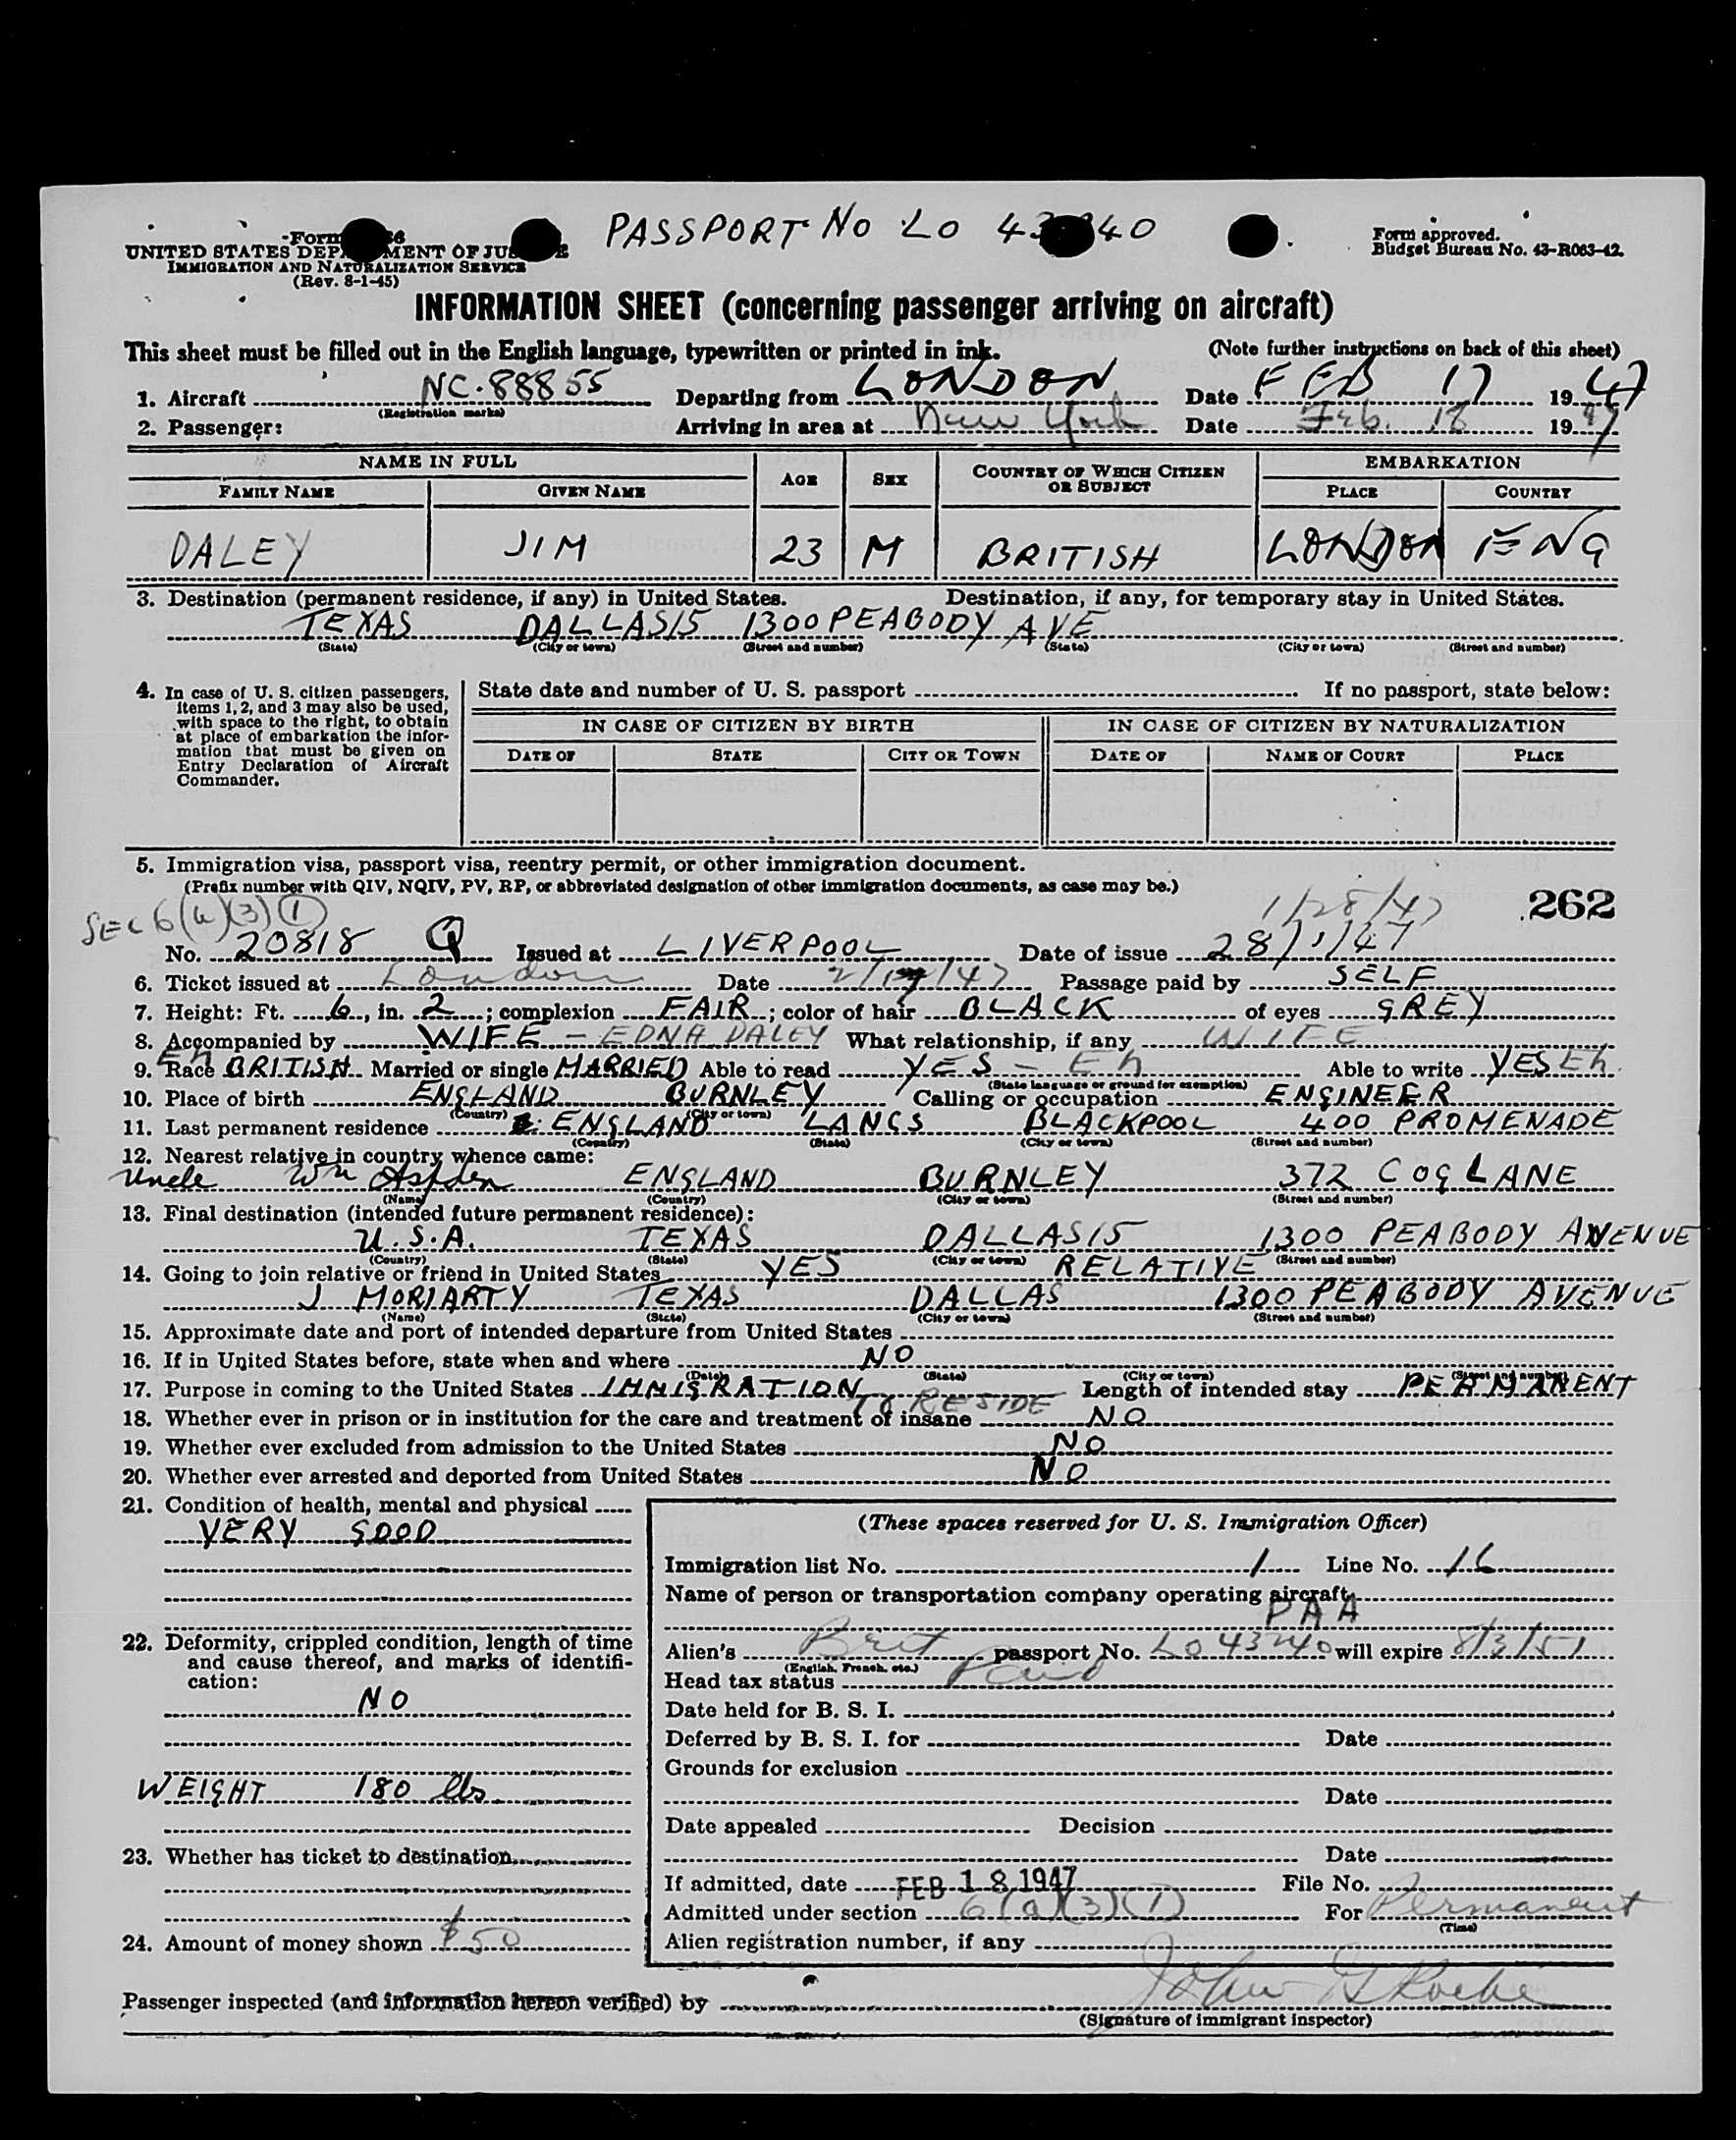 PASSPORT No LO 43 40
Form approved.
UNITED STATES DEPARTMENT OF JUSTICE
Budget Bureau No. 43-R063-42.
IMMIGRATION AND NATURALIZATION SERVICE
(Rev. 8-1-45)
INFORMATION SHEET (concerning passenger arriving on aircraft)
This sheet must be filled out in the English language, typewritten or printed in ink. (Note further instructions on back of this sheet)
1. Aircraft NC-88855 Departing from LONDON Date FEB 17 1947
(Registration marks)
2. Passenger: Arriving in area at New York Date Feb. 18 1947
NAME IN FULL AGE SEX COUNTRY OF WHICH CITIZEN OR SUBJECT EMBARKATION
FAMILY NAME GIVEN NAME PLACE COUNTRY
DALEY JIM 23 M BRITISH LONDON ENG
3. Destination (permanent residence, if any) in United States. Destination, if any, for temporary stay in United States.
TEXAS DALLAS15 1300 PEABODY AVE
(State) (City or town) (Street and number) (State) (City or town) (Street and number)
4. In case of U. S. citizen passengers, items 1, 2, and 3 may also be used, with space to the right, to obtain at place of embarkation the information that must be given on Entry Declaration of Aircraft Commander.
State date and number of U. S. passport If no passport, state below:
IN CASE OF CITIZEN BY BIRTH IN CASE OF CITIZEN BY NATURALIZATION
DATE OF STATE CITY OR TOWN DATE OF NAME OF COURT PLACE
5. Immigration visa, passport visa, reentry permit, or other immigration document.
(Prefix number with QIV, NQIV, PV, RP, or abbreviated designation of other immigration documents, as case may be.)
SEC 6(a)(3)(1) 1/28/47 262
No. 20818 Q Issued at LIVERPOOL Date of issue 28/1/47
6. Ticket issued at London Date 2/17/47 Passage paid by SELF
7. Height: Ft. 6, in. 2; complexion FAIR; color of hair BLACK of eyes GREY
8. Accompanied by WIFE - EDNA DALEY What relationship, if any WIFE
9. Race Eh BRITISH Married or single MARRIED Able to read YES - Eh Able to write YES Eh
(State language or ground for exemption)
10. Place of birth ENGLAND BURNLEY Calling or occupation ENGINEER
(Country) (City or town)
11. Last permanent residence ENGLAND LANCS BLACKPOOL 400 PROMENADE
(Country) (State) (City or town) (Street and number)
12. Nearest relative in country whence came:
Uncle Wm Aspden ENGLAND BURNLEY 372 COG LANE
(Name) (Country) (City or town) (Street and number)
13. Final destination (intended future permanent residence):
U.S.A. TEXAS DALLAS15 1300 PEABODY AVENUE
(Country) (State) (City or town) (Street and number)
14. Going to join relative or friend in United States YES RELATIVE
J MORIARTY TEXAS DALLAS 1300 PEABODY AVENUE
(Name) (State) (City or town) (Street and number)
15. Approximate date and port of intended departure from United States
16. If in United States before, state when and where NO
(Date) (State) (City or town) (Street and number)
17. Purpose in coming to the United States IMMIGRATION TO RESIDE Length of intended stay PERMANENT
18. Whether ever in prison or in institution for the care and treatment of insane NO
19. Whether ever excluded from admission to the United States NO
20. Whether ever arrested and deported from United States NO
21. Condition of health, mental and physical
VERY GOOD
22. Deformity, crippled condition, length of time and cause thereof, and marks of identification:
NO
WEIGHT 180 lbs
23. Whether has ticket to destination
24. Amount of money shown $50
(These spaces reserved for U. S. Immigration Officer)
Immigration list No. 1 Line No. 16
Name of person or transportation company operating aircraft
PAA
Alien's Brit passport No. LO 43240 will expire 8/3/51
(English, French, etc.)
Head tax status Paid
Date held for B. S. I.
Deferred by B. S. I. for Date
Grounds for exclusion
Date
Date appealed Decision
Date
If admitted, date FEB 18 1947 File No.
Admitted under section 6(a)(3)(1) For Permanent
(Time)
Alien registration number, if any
Passenger inspected (and information hereon verified) by John G Roche
(Signature of immigrant inspector)